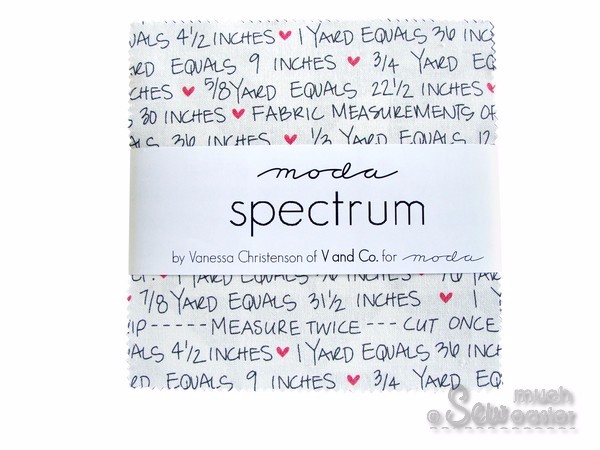 UALS 4 1/2 INCHES ♥ 1 YARD EQUALS 36 INCH
RD EQUALS 9 INCHES ♥ 3/4 YARD EQ
CHES ♥ 5/8 YARD EQUALS 22 1/2 INCHES ♥
S 30 INCHES ♥ FABRIC MEASUREMENTS OF
LS 36 INCHES ♥ 1/3 YARD EQUALS 12
moda
spectrum
by Vanessa Christenson of V and Co. for moda
YARD EQUALS INCHES
7/8 YARD EQUALS 31 1/2 INCHES ♥ 1 Y
IP-----MEASURE TWICE---CUT ONCE
ALS 4 1/2 INCHES ♥ 1 YARD EQUALS 36 INCH
RD EQUALS 9 INCHES ♥ 3/4 YARD EQ
Sew much easier